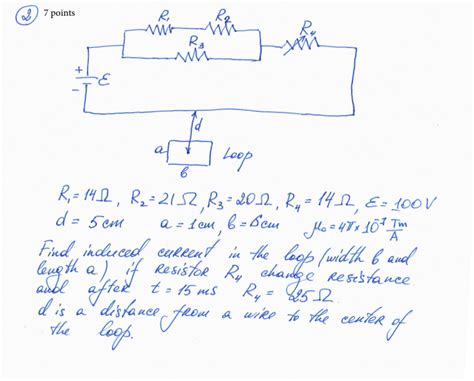 2 7 points
R₁ R₂
R₃ R₄
+ ε
-
d
a Loop
b
R₁ = 14Ω, R₂ = 21Ω, R₃ = 20Ω, R₄ = 14Ω, ε = 100V
d = 5cm a = 1cm, b = 6cm μ₀ = 4π×10⁻⁷ Tm/A
Find induced current in the loop (width b and
length a) if resistor R₄ change resistance
and after t = 15 ms R₄ = 25Ω
d is a distance from a wire to the center of
the loop.